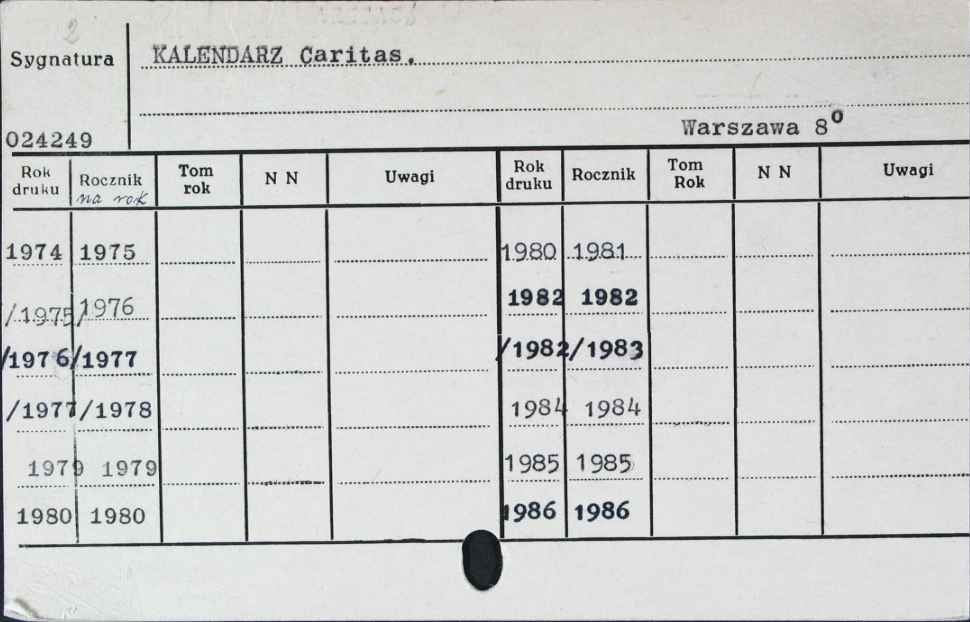 2
Sygnatura KALENDARZ Caritas.
024249 Warszawa 8º
Rok druku Rocznik na rok Tom rok N N Uwagi Rok druku Rocznik Tom Rok N N Uwagi
1974 1975 1980 1981
/1975/ 1976 1982 1982
/1976/1977 /1982/1983
/1977/1978 1984 1984
1979 1979 1985 1985
1980 1980 1986 1986